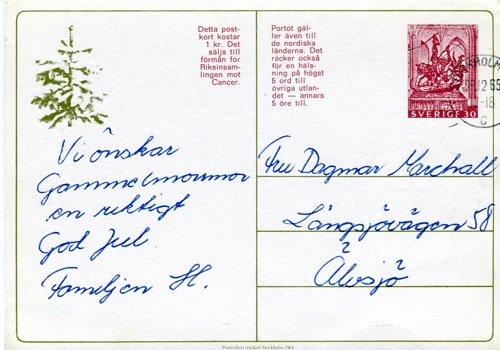 Detta post-
kort kostar
1 kr. Det
säljs till
förmån för
Riksinsam-
lingen mot
Cancer.
Portot gäl-
ler även till
de nordiska
länderna. Det
räcker också
för en häls-
ning på högst
5 ord till
övriga utlan-
det — annars
5 öre till.
SVERIGE 30
Vi önskar
Gammelmormor
en riktigt
God Jul
Familjen H.
Fru Dagmar Marchall
Långsjövägen 58
Älvsjö